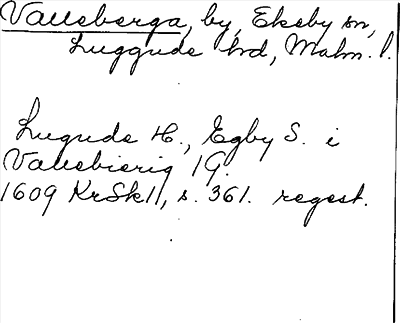 Valleberga, by, Ekeby sn,
Luggude hd, Malm. l.
Lugude H., Egby S. i
Vallebierig 1 G.
1609 KrSkII, s. 361. regest.